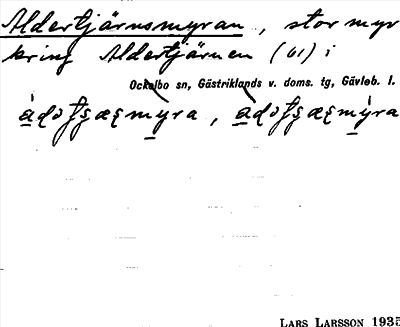 Aldertjärnsmyran, stor myr
kring Aldertjärnen (61) i
Ockelbo sn, Gästriklands v. doms. tg, Gävleb. l.
LARS LARSSON 1935